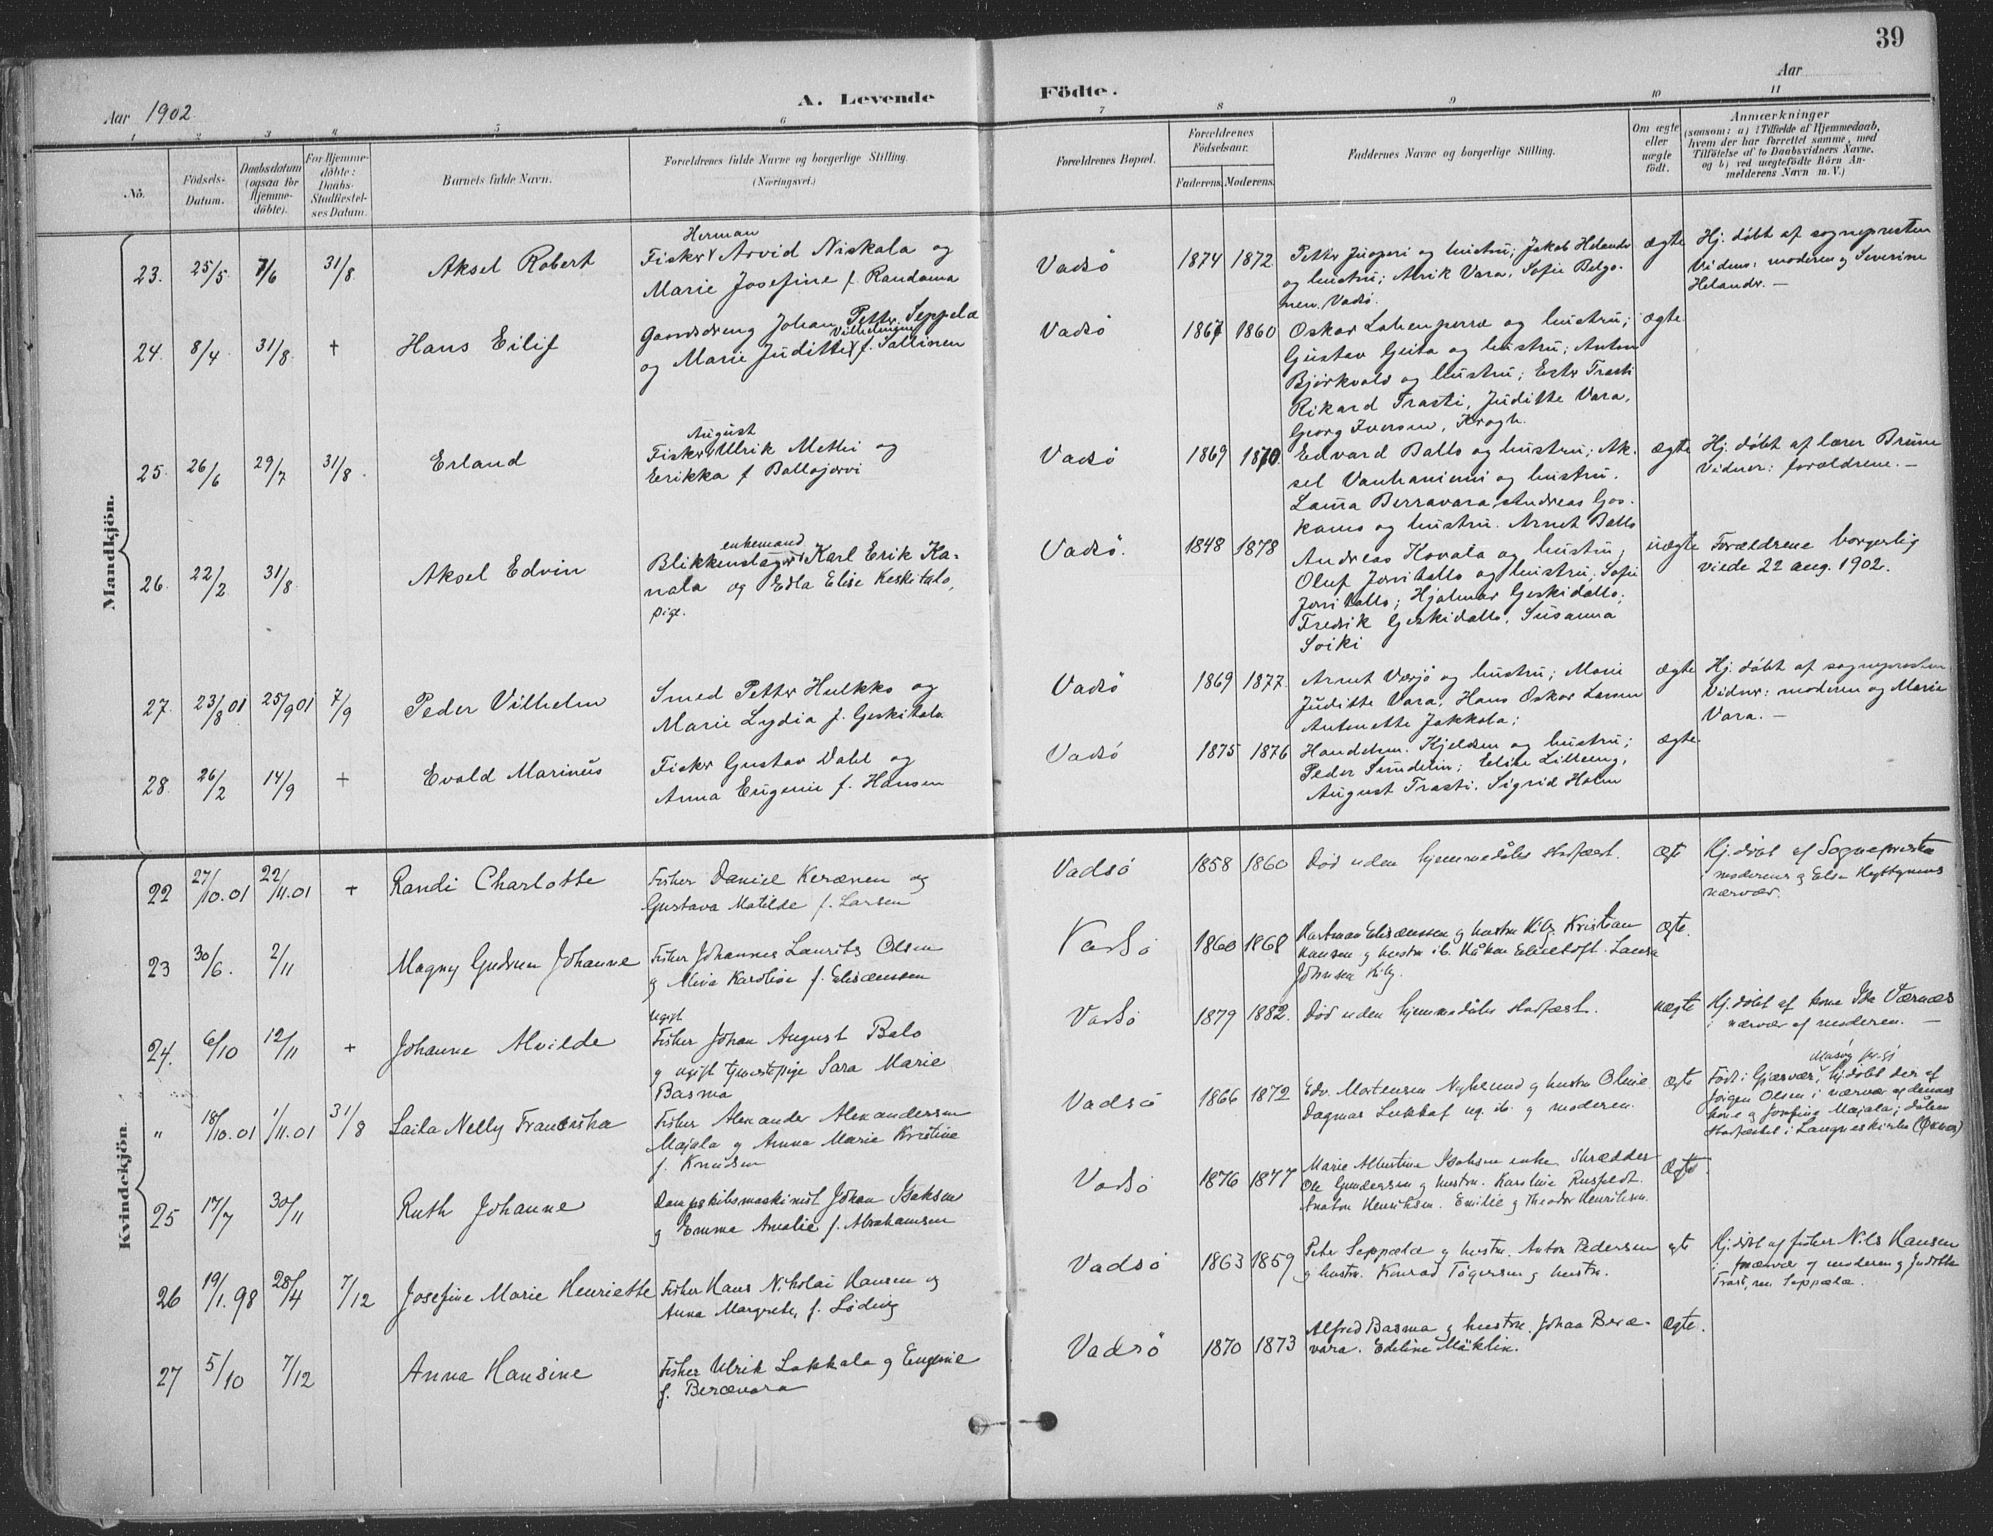 39
Aar 1902.
A. Levende Födte.
Aar
1 2 3 4 5 6 7 8 9 10 11
Nö.
Födsels-Datum.
Daabsdatum (ogsaa for Hjemme-döbte).
For Hjemme-döbte: Daabs-Stadfæstel-ses Datum.
Barnets fulde Navn.
Forældrenes fulde Navne og borgerlige Stilling. (Næringsvei.)
Forældrenes Bopæl.
Forældrenes Födselsaar.
Faderens. Moderens.
Faddernes Navne og borgerlige Stilling.
Om ægte eller uægte født.
Anmærkninger
(saasom: a) i Tilfælde af Hjemmedaab,
hvem der har forrettet samme, med
Tilföielse af to Daabsvidners Navne,
og b) ved uægtefödte Börn An-
melderens Navn m. V.)
Mandkjön.
23. 25/5 7/6 31/8 Aksel Robert
Herman
Fisker Arvid Niskala og
Marie Josefine f. Randama
Vadsö 1874 1872
og hustru; Jakob Helander
og hustru; Vara, Sofie Belgo-
nen. Vadsö.
ægte
Hj. döbt af sognepresten
Vidner: moderen og Severine
Helander. —
24. 8/4 31/8 + Hans Eilif
Gaardsdreng Johan Petter Seppelæ
Vilhelmine
og Marie Juditte f. Sallinen
Vadsö 1867 1860
Oskar og hustru;
Gustav og hustru; Anton
Bjørkvold og hustru; Ester Trasti
Rikard Trasti, Juditte Vara,
Georg Iversen, Krogh.
ægte
25. 26/6 29/7 31/8 Erland
August
Fisker Ulrik Methi og
Erikka f Ballojervi
Vadsö 1869 1870
Edvard Ballo og hustru; Ak-
sel Vanhaniemi og hustru.
Laura Berravara, Andreas Gos-
kamo og hustru. Arnet Ballo
ægte
Hj. döbt af lærer Bruun
Vidner: forældrene. —
26. 22/2 31/8 Aksel Edvin
enkemand
Blikkenslager Karl Erik Ka-
nala og Edla Elise Keskitalo,
pige.
Vadsö. 1848 1878
Andreas Kovala og hustru,
Oluf Jorvitallo og hustru; Sofie
Jorvitallo; Hjalmar Geskidallo;
Fredrik Geskidallo, Susanna
Soiki
uægte
Forældrene borgerlig
viede 22 aug. 1902.
27. 23/8 01 25/9 01 7/9 Peder Vilhelm
Smed Petter Hulkko og
Marie Lydia f. Geskitalo
Vadsö 1869 1877.
Arnet Værjö og hustru; Marie
Juditte Vara, Hans Oskar Larsen
Antonette Jakkola;
ægte
Hj. döbt af sognepresten
Vidner: moderen og Marie
Vara. —
28. 26/2 14/9 + Evald Marinus
Fisker Gustav Dahl og
Anna Eugenie f. Hansen
Vadsö 1875 1876
Handelsm. Kjeldsen og hustru;
Peder Sundelin; Eline Lilleeng,
August Trasti. Sigrid Holm
ægte
Kvindekjön.
22 27/10.01 22/11.01 + Randi Charlotte
Fisker Daniel Kerænen og
Gustava Matilde f. Larsen
Vadsö 1858 1860
Död uden hjemmedåbs stadfæst.
ægte
Hj. döbt af Sognepresten
i moderens og Elsa
nærvær.
23 30/6. 2/11 Magny Gudrun Johanne
Fisker Johannes Laurits Olsen
og Karoline f. Elisæussen
Vadsö 1860 1868
Hartman Elisæussen og hustru Kristian
Hansen og hustru ib. Håkon Laura
Johnsen
ægte.
24. 6/10 12/11 + Johanne Alvilde
ugift
Fisker Johan August Balo
og ugift tjenestepige Sara Marie
Basma
Vadsö 1879 1882.
Död uden hjemmedåbs stadfæst.
uægte
Hj. döbt af kone Ida Værnæs
i nærvær af moderen. —
" 18/10.01 1/11.01 31/8 Laila Nelly Franciska
Fisker Alexander Alexandersen
Majala og Anna Marie Kristine
f. Knudsen
Vadsö 1866 1872
Edv. Mortensen Nyksund og hustru Oline
Dagmar ug. ib. og moderen.
ægte
Måsøy
Född i Gjæsvær, hj. döbt der af
Jörgen Olsen i nærvær af dennes
kone og Josefine Majala; dåben
stadfæstet i kirke
25 17/7 30/11 Ruth Johanne
Dampskibsmaskinist Johan Isaksen
og Emma Amalie f. Abrahamsen
Vadsö 1876 1877
Marie Albertine Isaksen enke Skrædder
Ole Gundersen og hustru. Karoline
Anton Henriksen. Emilie og Theodor Henriksen.
Ægte
26 19/1.98 28/4 7/12 Josefine Marie Henriette
Fisker Hans Nikolai Hansen og
Anna Margrete, f.
Vadsö 1863 1859
Peter Seppælæ og hustru. Anton Pedersen
og hustru. Konrad Tögersen og hustru.
ægte
Hj. döbt af fisker Nils Hansen
i nærvær af moderen og Juditte
Seppælæ.
27 5/10 7/12 Anna Hansine
Fisker Ulrik Lakkala og Eugenie
f. Berævara
Vadsö 1870 1873
Alfred Basma og hustru. Johan Beræ-
vara. Edeline Mäklin.
ægte.